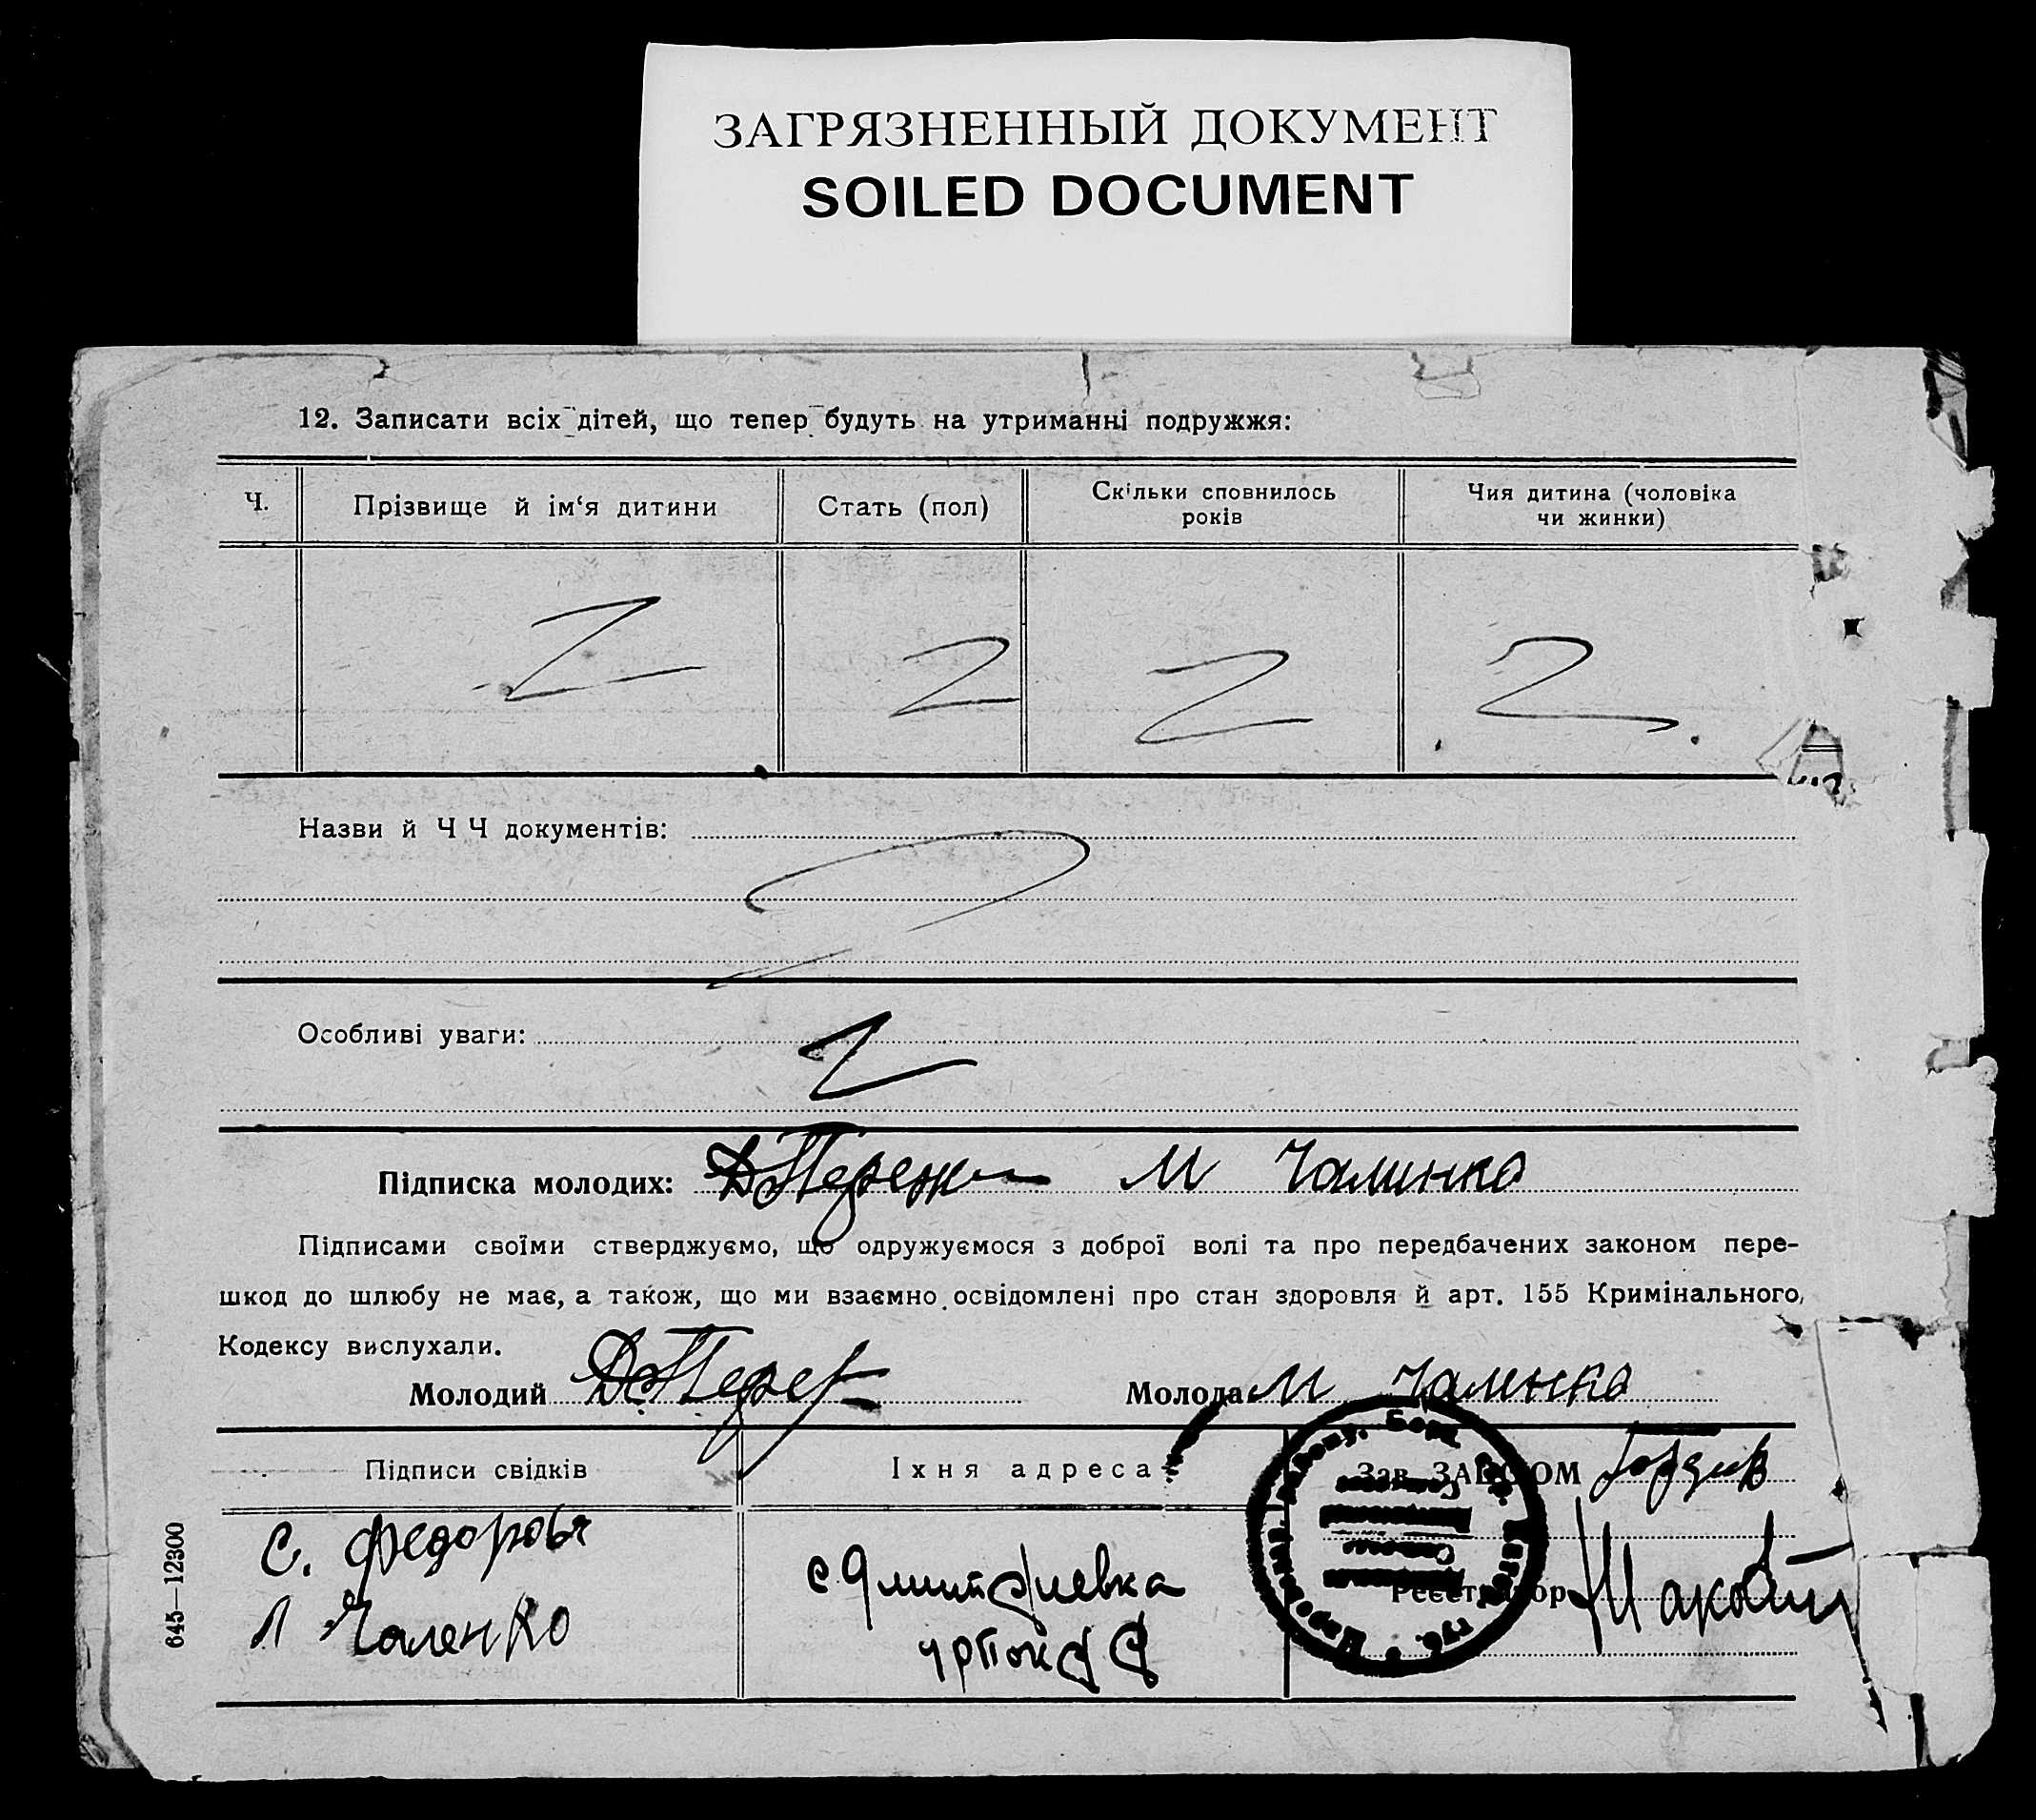 ЗАГРЯЗНЕННЫЙ ДОКУМЕНТ
SOILED DOCUMENT
12. Записати всіх дітей, що тепер будуть на утриманні подружжя:
Ч.
Прізвище й ім‘я дитини
Стать (пол)
Скільки сповнилось
років
Чия дитина (чоловіка
чи жинки)
Z
Z
Z
Z
Назви й Ч Ч документів:
Особливі уваги:
Z
Підписка молодих: М Чалинко
Підписами своїми стверджуємо, що одружуємося з доброї волі та про передбачених законом пере-
шкод до шлюбу не має, а також, що ми взаємно освідомлені про стан здоровля й арт. 155 Кримінального
Кодексу вислухали.
Молодий
Молода М Чаленко
Підписи свідків
Їхня адреса
Зав. ЗАГСОМ
С. Федоров
Л Чаленко
с Дмитриевка
Реєстратор
645—12300